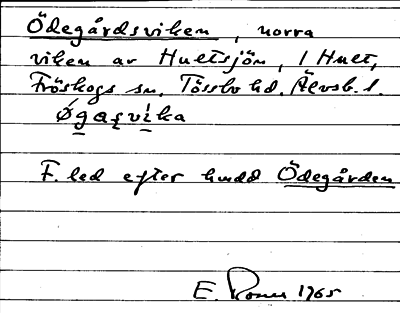 Ödegårdsviken, norra
viken av Hultsjön, 1 Hult,
Fröskogs sn. Tössbo hd. Älvsb. l.
Øgaṣvi̱ka
F. led efter hmdd Ödegården
E. 1965